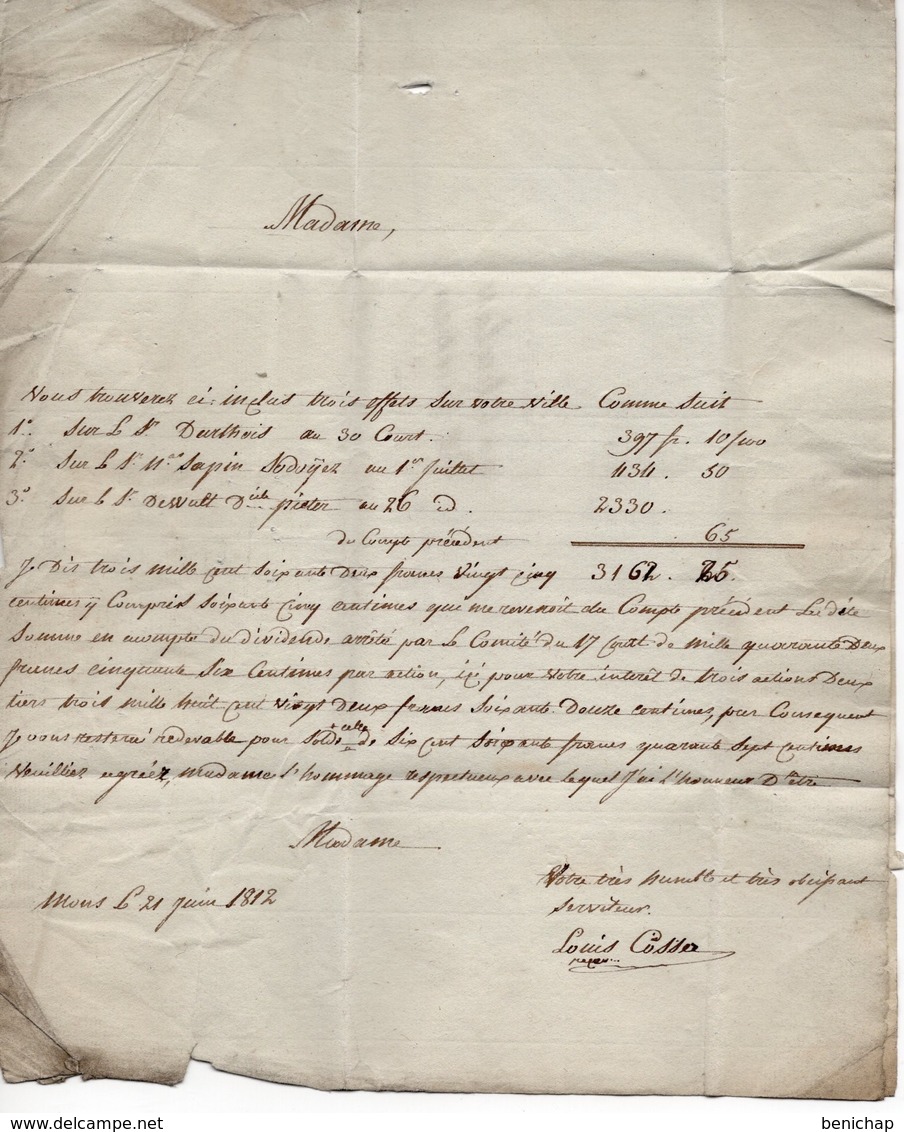 Madame,
Vous trouverez ci-inclus trois effets sur votre ville Comme Suit
1.º Sur le Sr. Durthois au 30 Court. 397 fr. 10/00
2.º Sur le Sr. Sapin Sodoÿez au 1er Juillet 434. 50
3.º Sur le Sr. Dewult Dlle pieter au 26 d. 2330.
du Compte précédent 65
Je Dis trois mille cent Soixante Deux francs Vingt cinq 3162. 25.
centimes ÿ Compris Soixante Cinq centimes que me revenoit du Compte précédent Ladite
Somme en acompte du dividende arrêté par le Comité du 17 Cour.t de mille quarante Deux
francs cinquante Six Centimes par action, içi pour Votre interêt de trois actions Deux
tiers trois mille huit cent vingt Deux francs Soixante Douze centimes, par Consequent
Je vous resterai redevable pour Solde de Six cent Soixante francs quarante Sept Centimes
Veuilliez agréez, madame l'hommage respectueux avec lequel J'ai l'honneur D'être
Madame
Votre très humble et très obéissant
Mons le 21 Juin 1812
Serviteur.
Louis Cosse
benichap